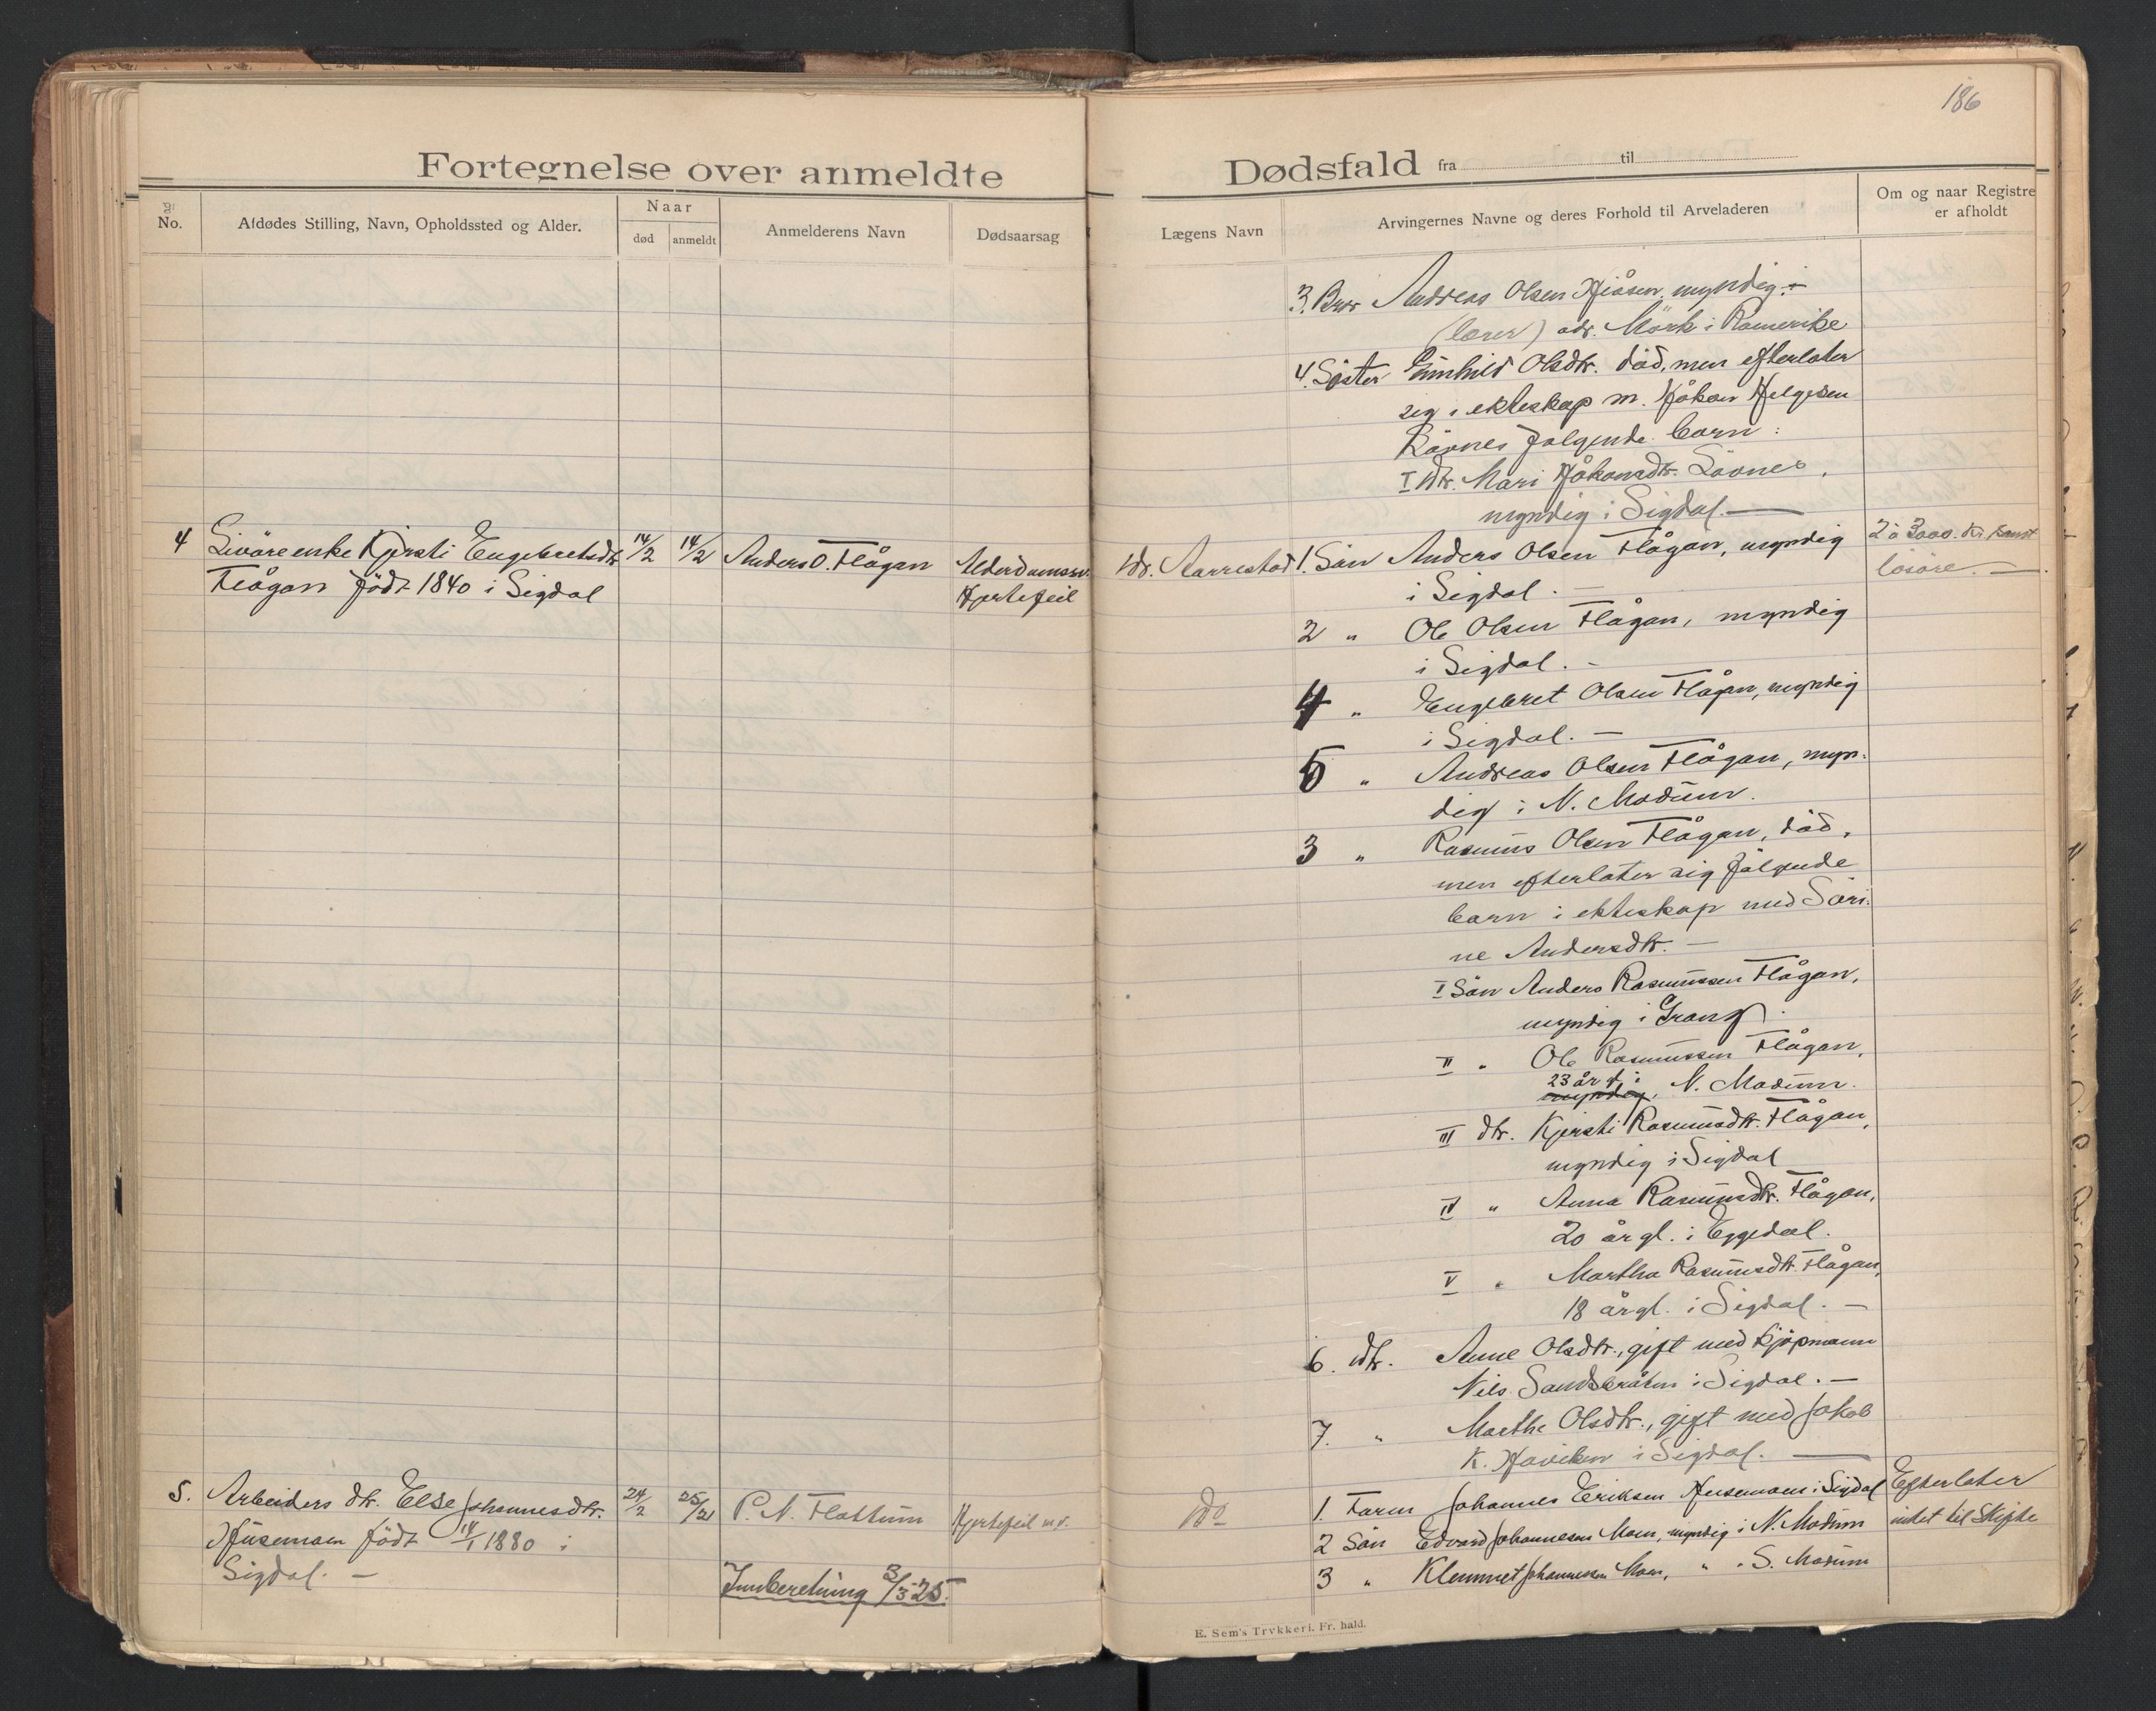 186
Fortegnelse over anmeldte Dødsfald fra til
No.
Afdødes Stilling, Navn, Opholdssted og Alder.
Naar
død anmeldt
Anmelderens Navn
Dødsaarsag
Lægens Navn
Arvingernes Navne og deres Forhold til Arveladeren
Om og naar Registre
er afholdt
3. Bror Andreas Olsen myndig i
(lærer) adr. Mørk i Romerike
4. Søster Gunhild Olsdtr. død, men efterlater
sig i ekteskap m. Håkon Helgesen
følgende barn:
I Dtr. Mari Håkonsdtr.
myndig i Sigdal. —
4 Livøreenke Kjersti Engebretsdtr
Flågan født 1840 i Sigdal
14/2 14/2 Anders O. Flågan
Alderdomssv.
Hjertefeil
Dr. Aarrestad
1. Søn Anders Olsen Flågan, myndig
i Sigdal. —
2 à 3000. Kr. samt
løsøre. —
2 " Ole Olsen Flågan, myndig
i Sigdal. -
4 " Engebret Olsen Flågan, myndig
i Sigdal. —
5 " Andreas Olsen Flågan, myn-
dig i N. Modum.
3 " Rasmus Olsen Flågan, død,
men efterlater sig følgende
barn i ekteskap med Søri-
ne Andersdtr. —
I Søn Anders Rasmussen Flågan,
myndig i
II " Ole Rasmussen Flågan,
23 år i
myndig, N. Modum.
III dtr. Kjersti Rasmusdtr. Flågan,
myndig i Sigdal
IV " Anna Rasmusdtr. Flågan,
20 år gl. i Eggedal.
V " Martha Rasmusdtr. Flågan,
18 år gl. i Sigdal. —
6. Dtr. Anne Olsdtr., gift med kjøpmann
Nils Sandsbråten i Sigdal. —
7. " Marthe Olsdtr., gift med Jakob
K. Haviken i Sigdal. —
5. Arbeiders dtr. Else Johannesdtr.
Husemoen født 14/1 1880 i
Sigdal. —
24/2 25/2 P. N. Flattum
Hjertefeil
do
Innberetning 3/3 25.
1. Farm Johannes Eriksen Husemoen i Sigdal
2 Søn Edvard Johannesen Moen, myndig i N. Modum
3 " Klemmet Johannesen Moen, " " S. Modum
Efterlater
intet til Skifte
E. Sem's Trykkeri. Fr. hald.